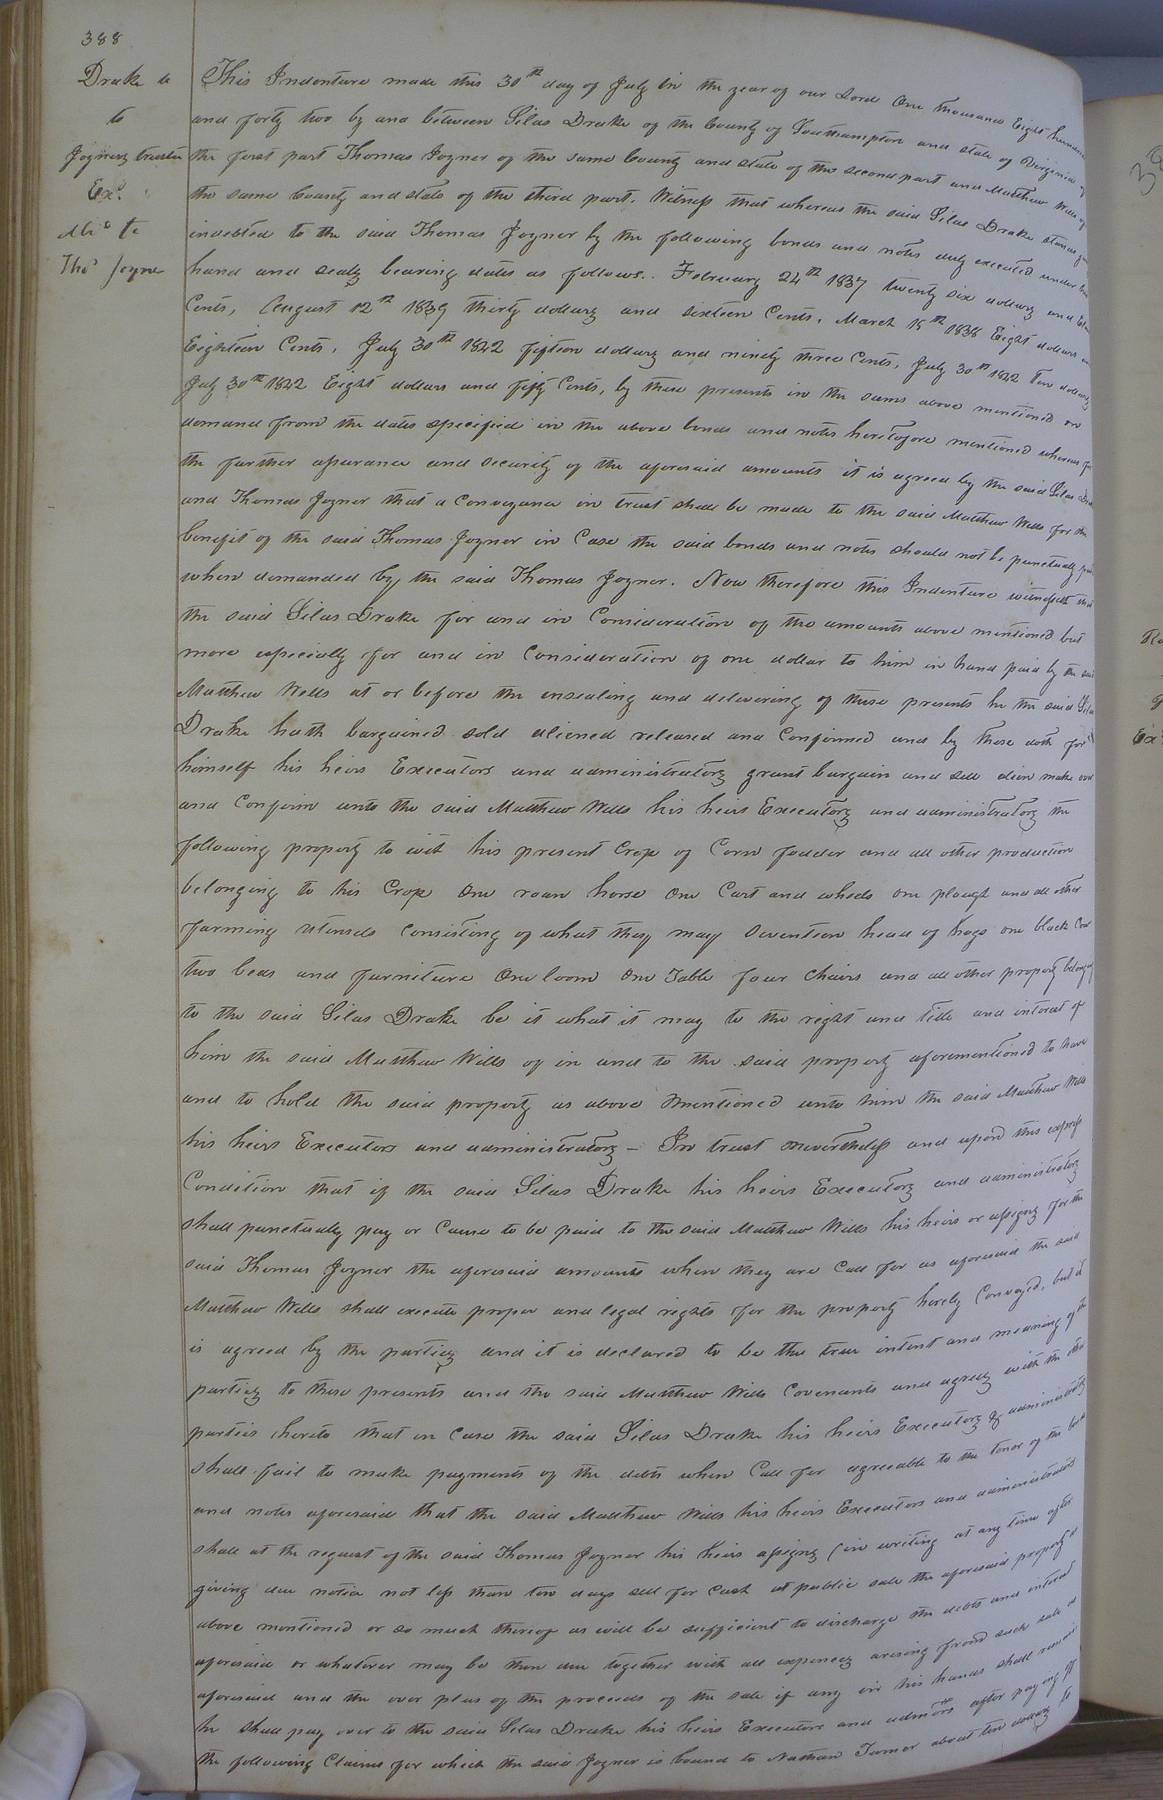 388
Drake &c
to
Joyners trustee
Exd
Mld to
Thos Joyner
This Indenture made this 30th day of July in the year of our Lord One thousand Eight hundred
and forty two by and between Silas Drake of the County of Southampton and state of Virginia of
the first part Thomas Joyner of the same County and state of the second part and Matthew Wills of
the same County and state of the third part. Witness that whereas the said Silas Drake stands
indebted to the said Thomas Joyner by the following bonds and notes duly executed under
hand and sealg bearing dates as follows. February 24th 1837 twenty six dollarg and
Cents, August 12th 1839 thirty dollarg and sixteen Cents, March 15th 1838 Eight dollars
Eighteen Cents, July 30th 1842 fifteen dollarg and ninety three Cents, July 30th 1842 Two dollarg
July 30th 1842 Eight dollars and fifty Cents, by these presents in the sums above mentioned on
demand from the dates specified in the above bonds and notes heretofore mentioned whereas for
the further assurance and security of the aforesaid amounts it is agreed by the said Silas
and Thomas Joyner that a Conveyance in trust shall be made to the said Matthew Wills for the
benefit of the said Thomas Joyner in Case the said bonds and notes should not be punctually
when demanded by the said Thomas Joyner. Now therefore this Indenture witnesseth that
the said Silas Drake for and in Consideration of the amounts above mentioned but
more especially for and in Consideration of one dollar to him in hand paid by the said
Matthew Wells at or before the ensealing and delivering of these presents he the said Silas
Drake hath bargained sold aliened released and Confirmed and by these doth for
himself his heirs Executors and administratorg grant bargain and sell alien make over
and Confirm unto the said Matthew Wells his heirs Executorg and administratorg the
following property to wit his present Crop of Corn fodder and all other production
belonging to his Crop One roan horse One Cart and wheels one plough and all other
farming utensels Consisting of what they may Seventeen head of hogs one black Cow
two beds and furniture One loom One Table four Chairs and all other property
to the said Silas Drake be it what it may to the right and title and interest of
him the said Matthew Wills of in and to the said property aforementioned to have
and to hold the said property as above mentioned unto him the said Matthew Wills
his heirs Executors and administratorg - In trust nevertheless and upon this express
Condition that if the said Silas Drake his heirs Executorg and administratorg
shall punctually pay or Cause to be paid to the said Matthew Wills his heirs or assigng for the
said Thomas Joyner the aforesaid amounts when they are Call for as aforesaid the said
Matthew Wells shall execute proper and legal rights for the property hereby Conveyed, but it
is agreed by the partieg and it is declared to be the true intent and meaning of the
partieg to these presents and the said Matthew Wills Covenants and agreeg with the other
parties hereto that in Case the said Silas Drake his heirs Executorg & administratorg
shall fail to make payments of the debts when Call for agreeable to the tenor of the
and notes aforesaid that the said Matthew Wills his heirs Executors and administrators
shall at the request of the said Thomas Joyner his heirs assigng (in writing at any time after
giving due notice not less than ten days sell for Cash at public sale the aforesaid property
above mentioned or so much thereof as will be sufficient to discharge the debts and interest
aforesaid or whatever may be then due together with all expenceg arising from such sale
aforesaid and the over plus of the proceeds of the sale if any in his hands shall remain
he shall pay over to the said Silas Drake his heirs Executors and admors after paying off
the following Claims for which the said Joyner is bound to Nathan Turner about ten dollarg to